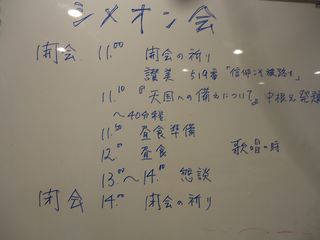 シメオン会
開会 11.00 開会の祈り
讃美 519番 「信仰こそ旅路を」
11.10 『天国への備えについて』 中根兄発題
～40分程
11.50 昼食準備
12.00 昼食 歌唱の時
13.00～14.00 懇談
閉会 14.00 閉会の祈り